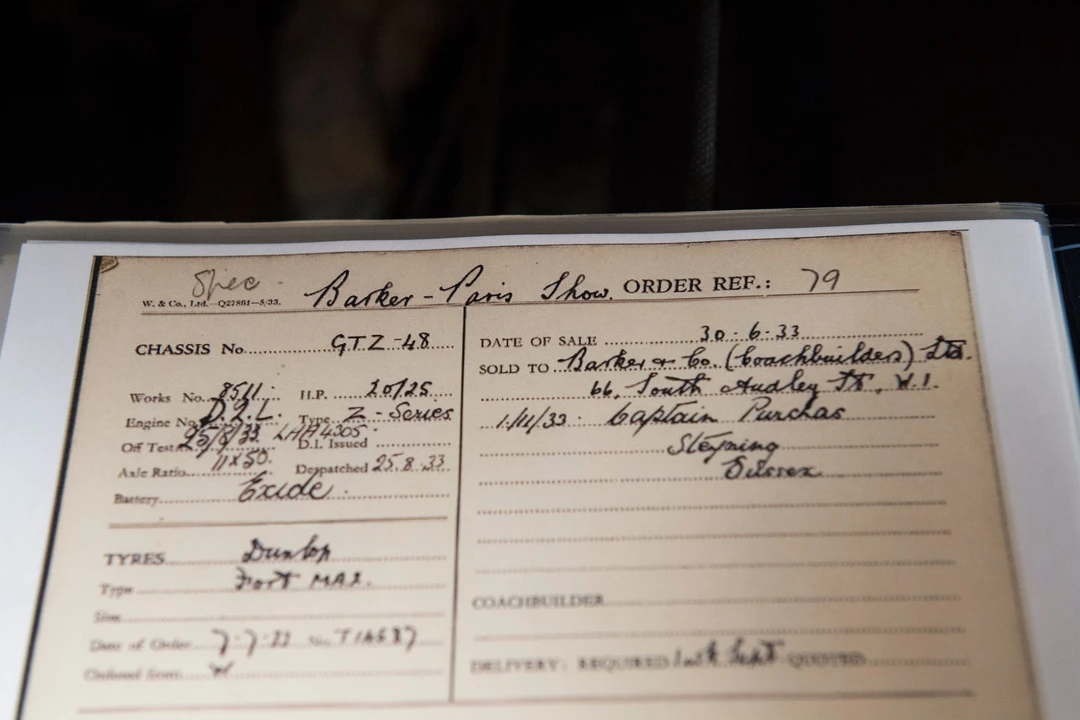 Spec - Barker - Paris Show. ORDER REF.: 79
W. & Co., Ltd.—Q27861—5/33.
CHASSIS No. GTZ-48
Works No. 8511. H.P. 20/25
Engine No. Type Z - Series
Off Test 25/8/33. D.I. Issued
Axle Ratio 11x50. Despatched 25.8.33
Battery Exide.
TYRES Dunlop
Type Fort
Size
Date of Order No.
Ordered from
DATE OF SALE 30-6-33
SOLD TO Barker & Co. (Coachbuilders) Ltd.
66, South Audley St, W.1.
1/11/33. Captain Purchas
Steyning
Sussex
COACHBUILDER
DELIVERY: REQUIRED Sept QUOTED